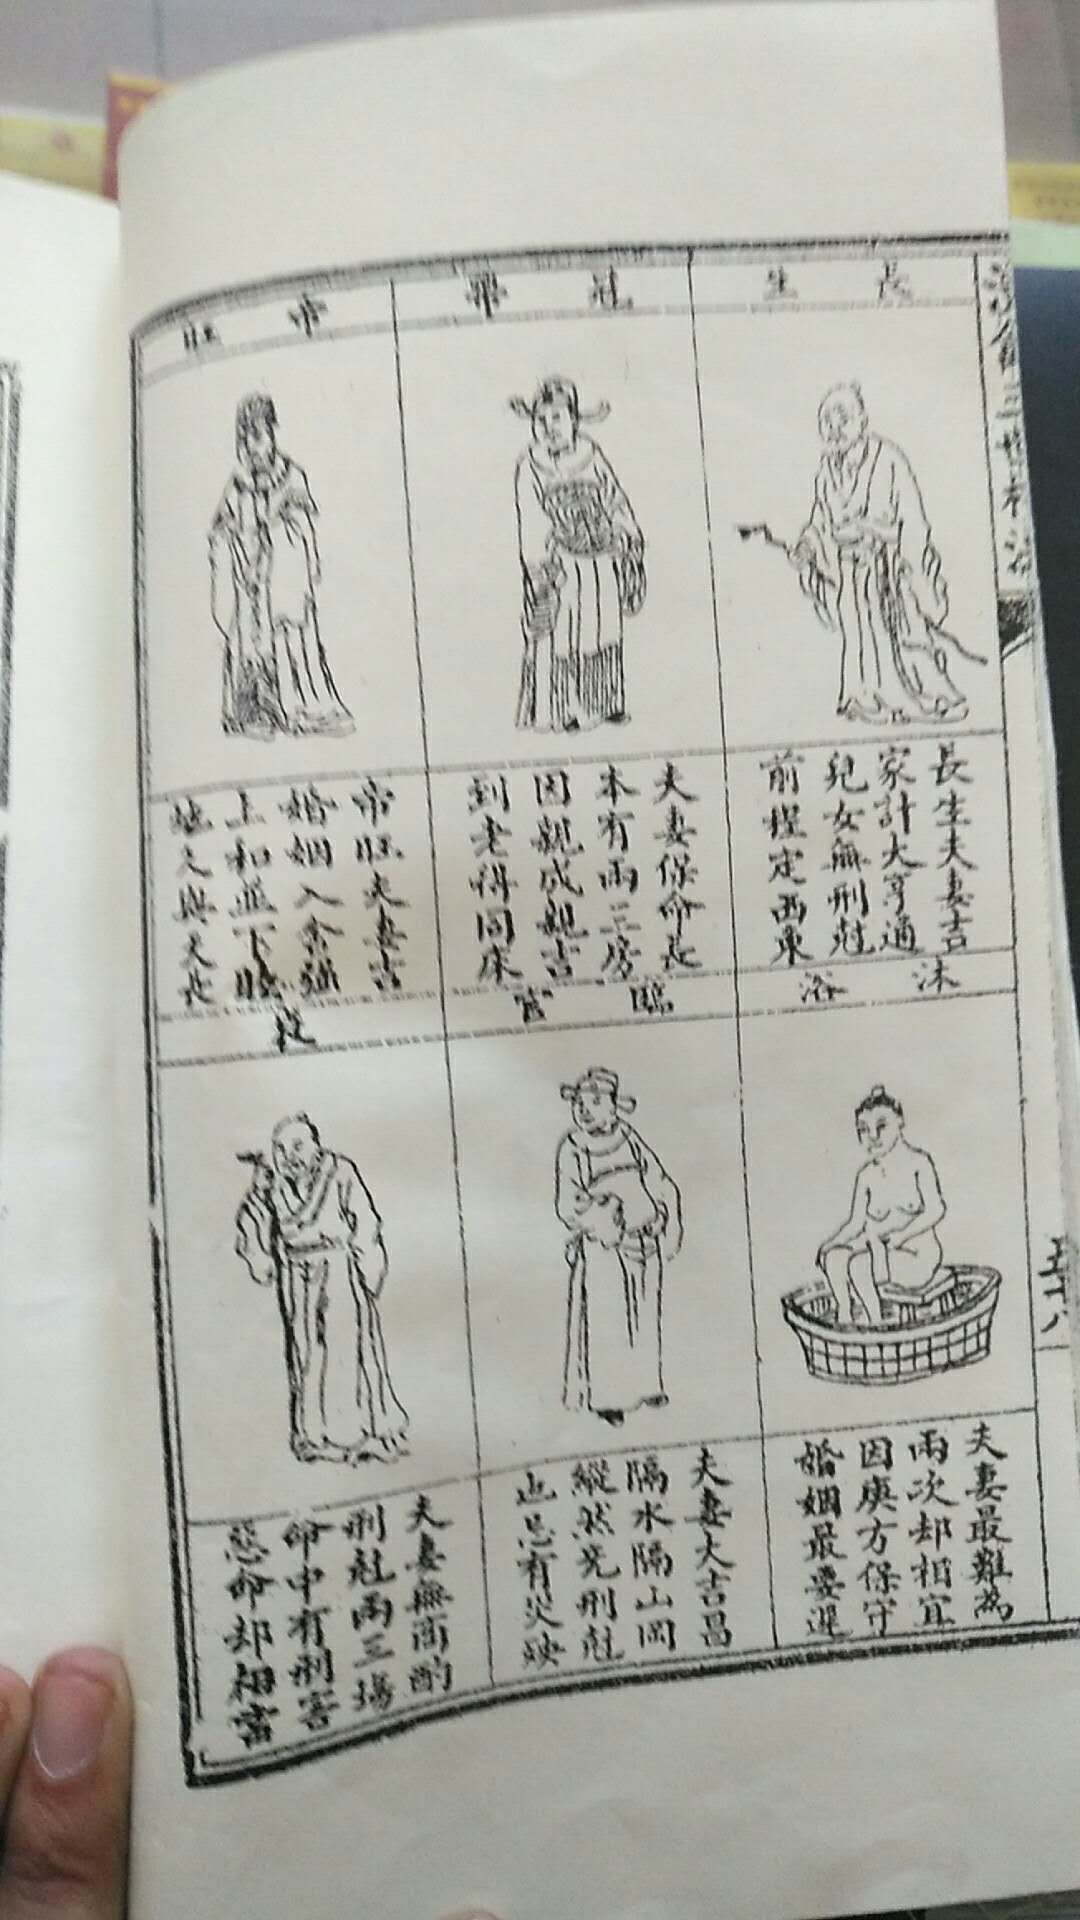 長生
長生夫妻吉
家計大亨通
兒女無刑尅
前程定西東
沐浴
夫妻最難為
兩次却相宜
因庚方保守
婚姻最要遲
冠帶
夫妻保命長
本有兩三房
因親成親吉
到老得同床
臨官
夫妻大吉昌
隔水隔山岡
縱然免刑尅
也忌有災殃
帝旺
帝旺夫妻吉
婚姻入余強
上和並下睦
地久與天長
衰
夫妻無商酌
刑尅兩三場
命中有刑害
惡命却相當
五十八